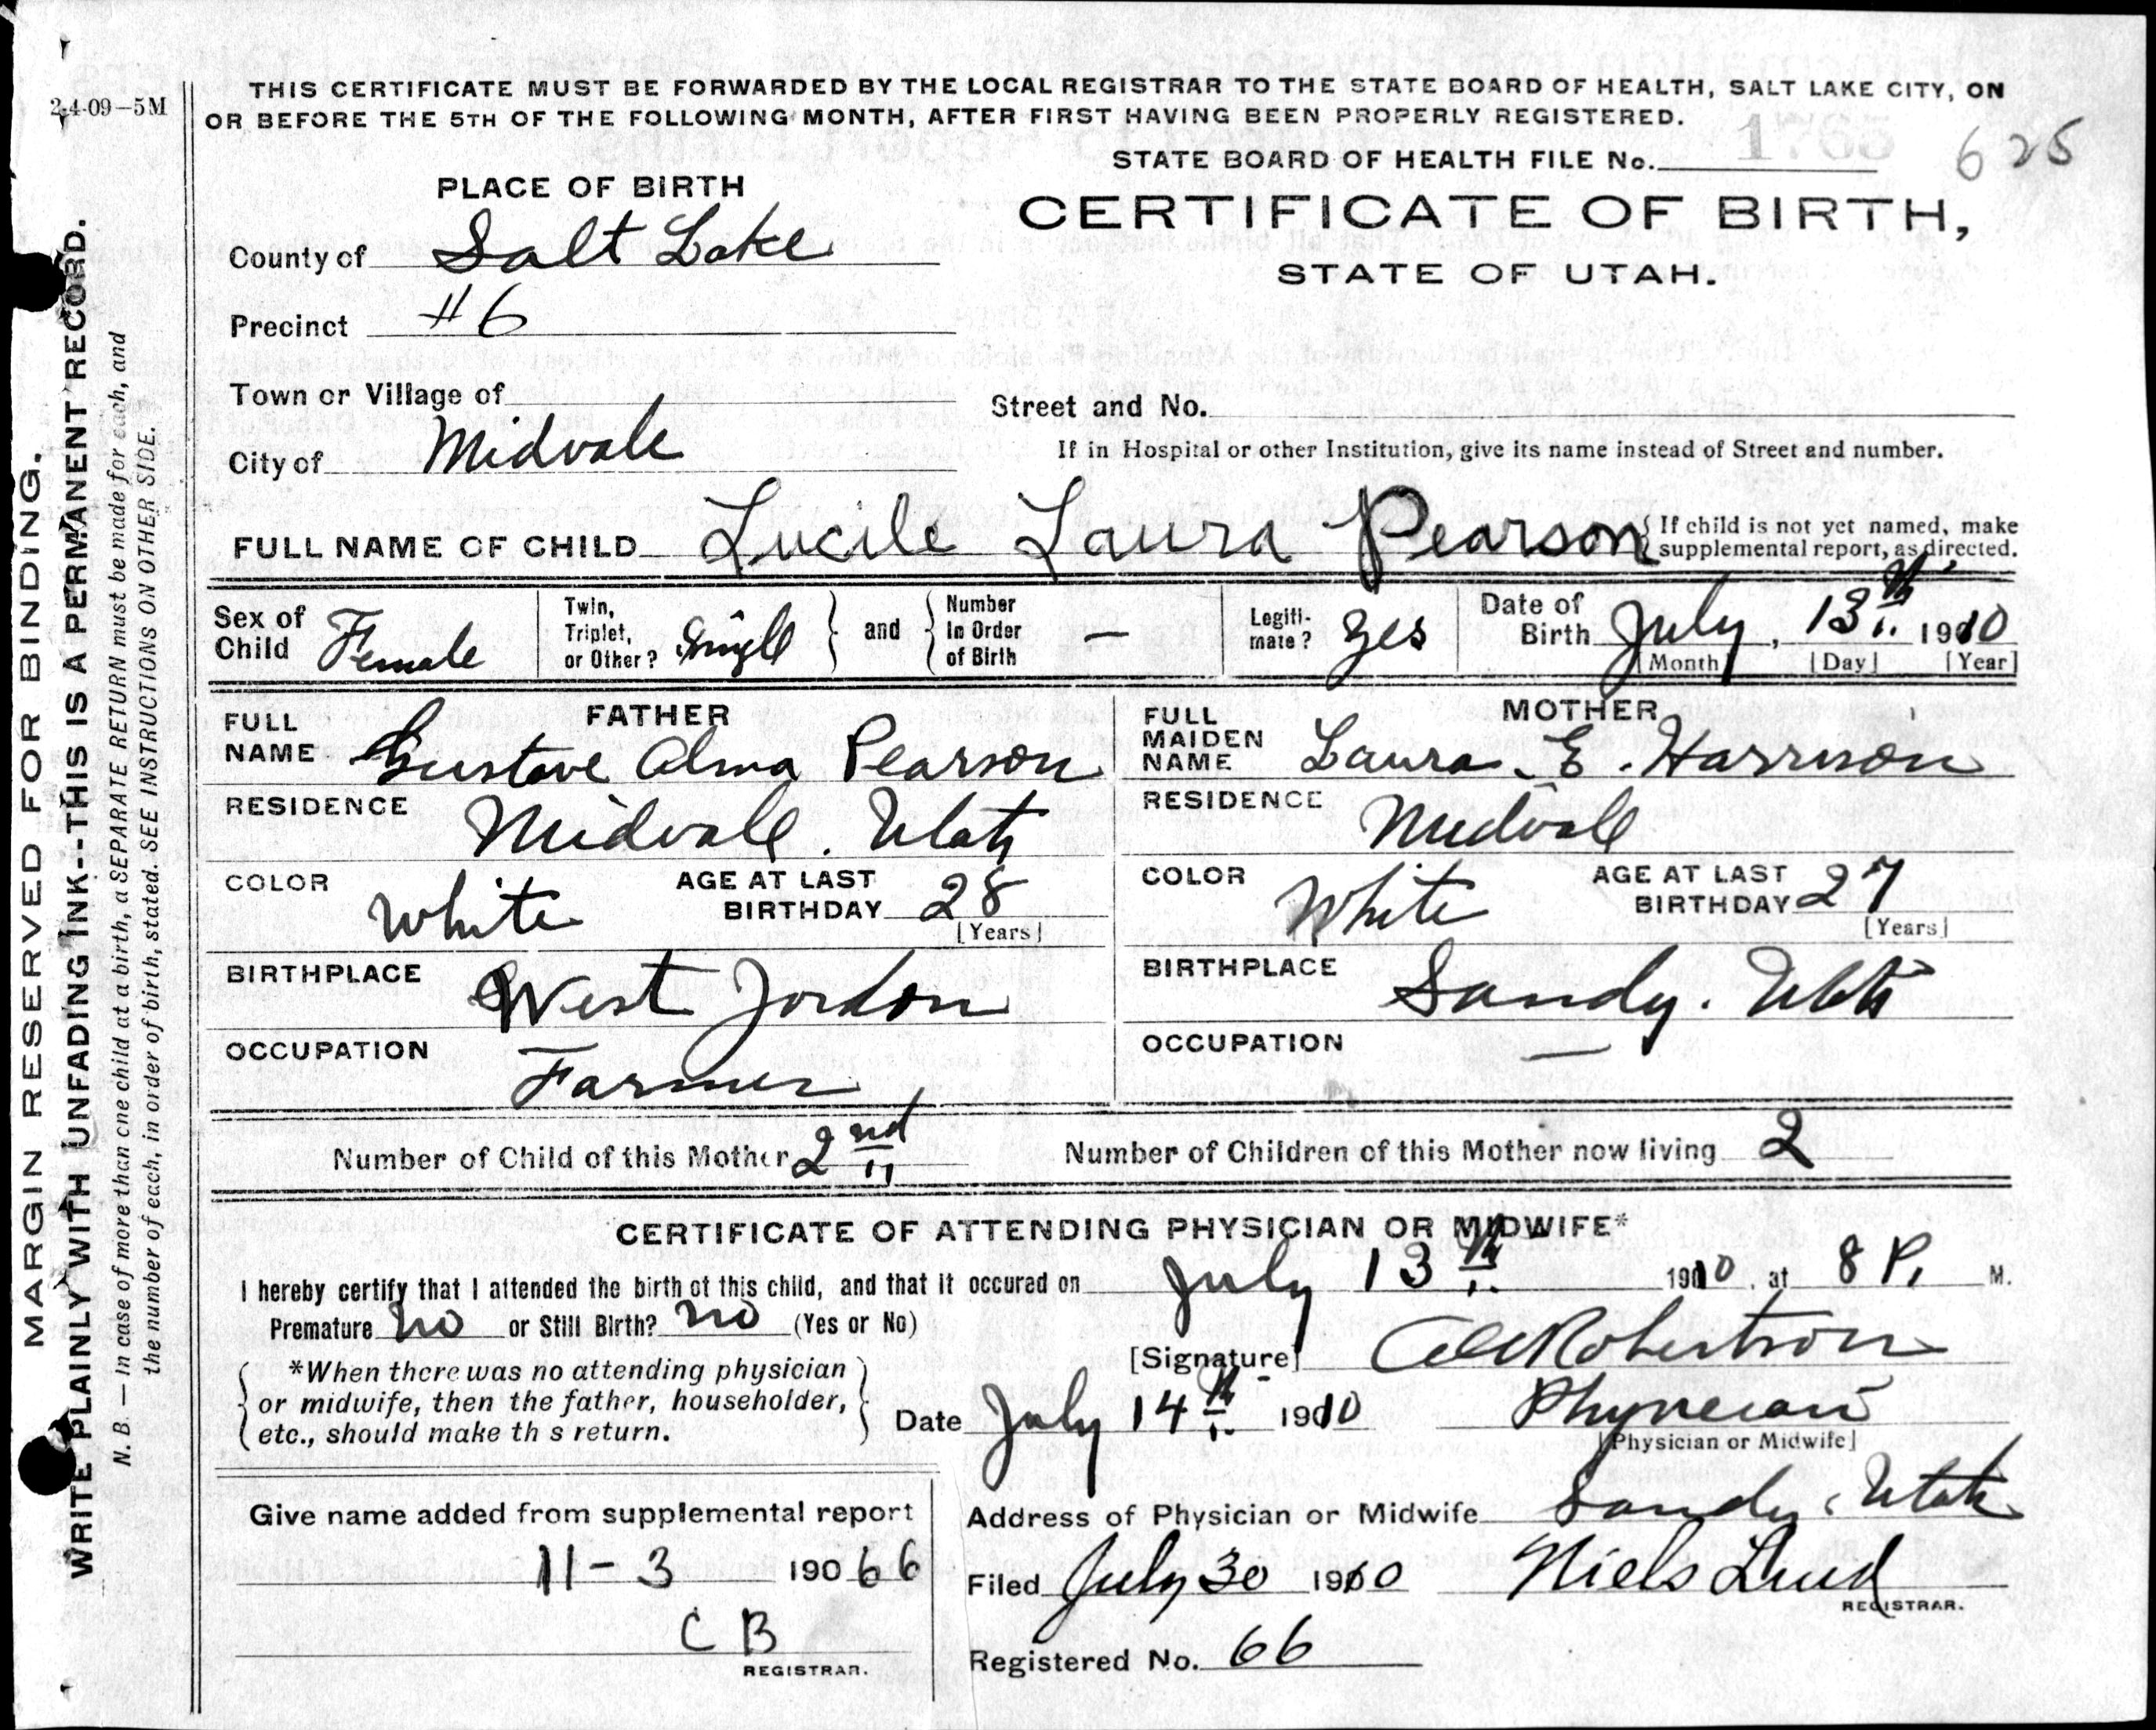 2-4-09-5M
THIS CERTIFICATE MUST BE FORWARDED BY THE LOCAL REGISTRAR TO THE STATE BOARD OF HEALTH, SALT LAKE CITY, ON
OR BEFORE THE 5TH OF THE FOLLOWING MONTH, AFTER FIRST HAVING BEEN PROPERLY REGISTERED.
STATE BOARD OF HEALTH FILE No. 1765 625
CERTIFICATE OF BIRTH,
STATE OF UTAH.
PLACE OF BIRTH
County of Salt Lake
Precinct #6
Town or Village of
City of Midvale
Street and No.
If in Hospital or other Institution, give its name instead of Street and number.
FULL NAME OF CHILD Lucile Laura Pearson { If child is not yet named, make
supplemental report, as directed.
Sex of Child Female
Twin, Triplet, or Other? Single } and { Number In Order of Birth —
Legiti-mate? yes
Date of Birth July, 13th 1910
[Month] [Day] [Year]
FATHER
FULL NAME Gustave Alma Pearson
RESIDENCE Midvale. Utah
COLOR White AGE AT LAST BIRTHDAY 28
[Years]
BIRTHPLACE West Jordon
OCCUPATION Farmer
MOTHER
FULL MAIDEN NAME Laura. E. Harrison
RESIDENCE Midvale
COLOR White AGE AT LAST BIRTHDAY 27
[Years]
BIRTHPLACE Sandy. Utah
OCCUPATION —
Number of Child of this Mother 2nd Number of Children of this Mother now living 2
CERTIFICATE OF ATTENDING PHYSICIAN OR MIDWIFE*
I hereby certify that I attended the birth of this child, and that it occured on July 13th 1910, at 8 P. M.
Premature no or Still Birth? no (Yes or No)
*When there was no attending physician
or midwife, then the father, householder,
etc., should make th s return.
[Signature] Robertson
Date July 14th 1910 Physician
[Physician or Midwife]
Address of Physician or Midwife Sandy, Utah
Filed July 30 1910 Niels Lind
REGISTRAR.
Registered No. 66
Give name added from supplemental report
11-3 190 66
C B
REGISTRAR.
MARGIN RESERVED FOR BINDING.
WRITE PLAINLY WITH UNFADING INK--THIS IS A PERMANENT RECORD.
N. B. — In case of more than one child at a birth, a SEPARATE RETURN must be made for each, and
the number of each, in order of birth, stated. SEE INSTRUCTIONS ON OTHER SIDE.